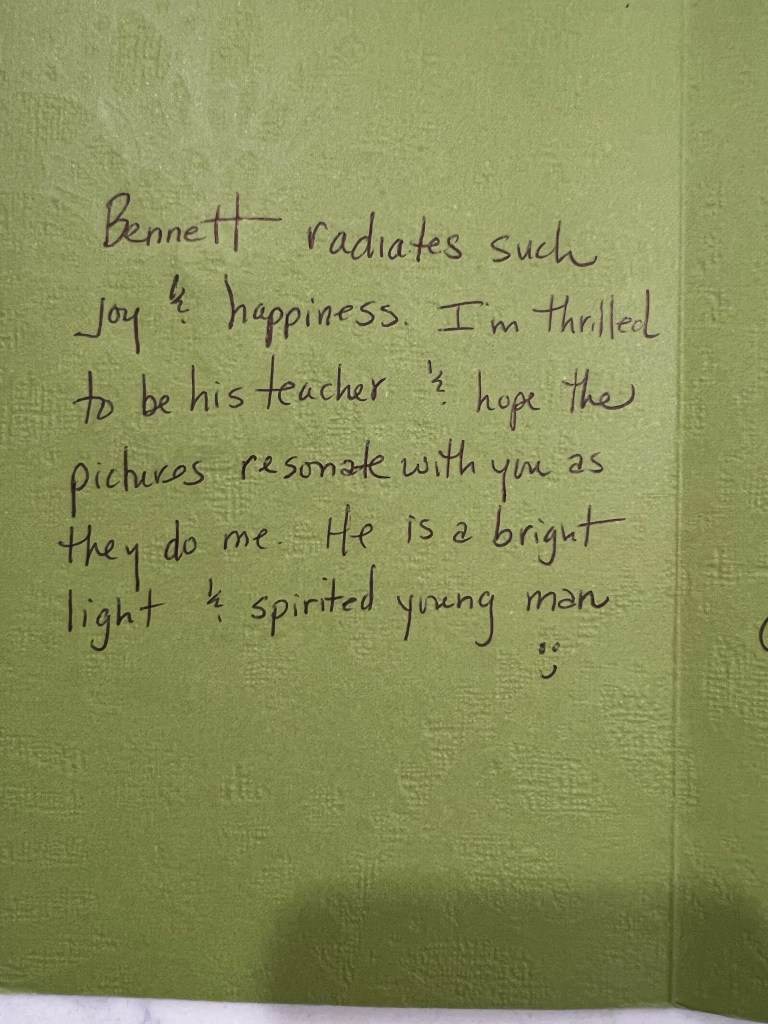 Bennett radiates such
Joy & happiness. I'm thrilled
to be his teacher & hope the
pictures resonate with you as
they do me. He is a bright
light & spirited young man
:)